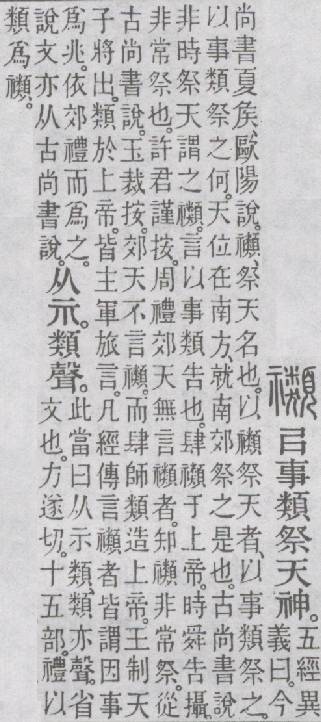 禷 㠯事類祭天神。
五經異
義曰。今
尚書夏矦、歐陽說。禷、祭天名也。以禷祭天者、以事類祭之。
以事類祭之何。天位在南方、就南郊祭之是也。古尚書說。
非時祭天謂之禷。言以事類告也。肆禷于上帝。時舜告攝。
非常祭也。許君謹按。周禮郊天無言禷者。知禷非常祭。從
古尚書說。玉裁按。郊天不言禷。而肆師類造上帝。王制天
子將出。類於上帝。皆主軍旅言。凡經傳言禷者皆謂因事
爲兆。依郊禮而爲之。
說文亦从古尚書說。
从示。類聲。
此當曰从示類、類亦聲。省
文也。力遂切。十五部。禮以
類爲禷。